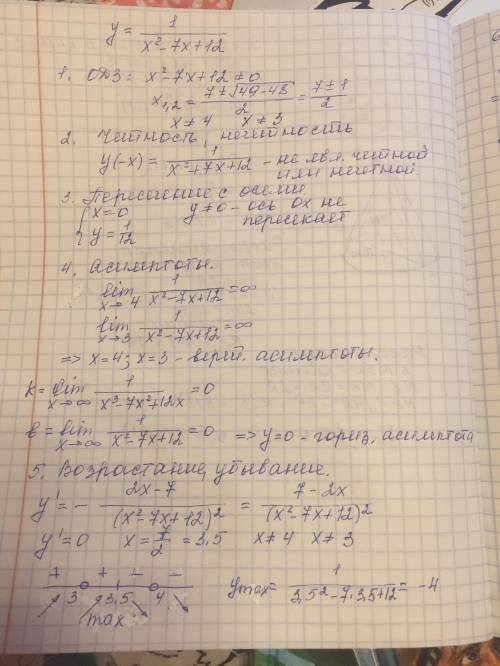 y = 1/(x² - 7x + 12)
1. ОДЗ: x² - 7x + 12 ≠ 0
x₁,₂ = (7 ± √(49 - 48))/2 = (7 ± 1)/2
x ≠ 4 x ≠ 3
2. Четность, нечетность
y(-x) = 1/(x² + 7x + 12) - не явл. четной
или нечетной
3. Пересечение с осями
{ x = 0 y ≠ 0 - ось ох не
{ y = 1/12 пересекает
4. Асимптоты.
lim x→4 1/(x² - 7x + 12) = ∞
lim x→3 1/(x² - 7x + 12) = ∞
=> x = 4; x = 3 - верт. асимптоты.
k = lim x→∞ 1/(x³ - 7x² + 12x) = 0
b = lim x→∞ 1/(x² - 7x + 12) = 0 => y = 0 - гориз. асимптота
5. Возрастание, убывание.
y' = - (2x - 7)/(x² - 7x + 12)² = (7 - 2x)/(x² - 7x + 12)²
y' = 0 x = 7/2 = 3,5 x ≠ 4 x ≠ 3
+ + - -
3 3,5 4 ymax = 1/(3,5² - 7·3,5 + 12) = -4
max